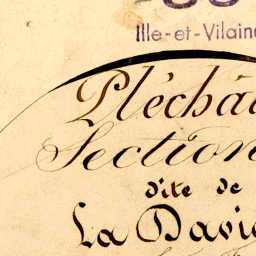 Ille-et-Vilaine
Pléchâ
Section
dite de
La Davi